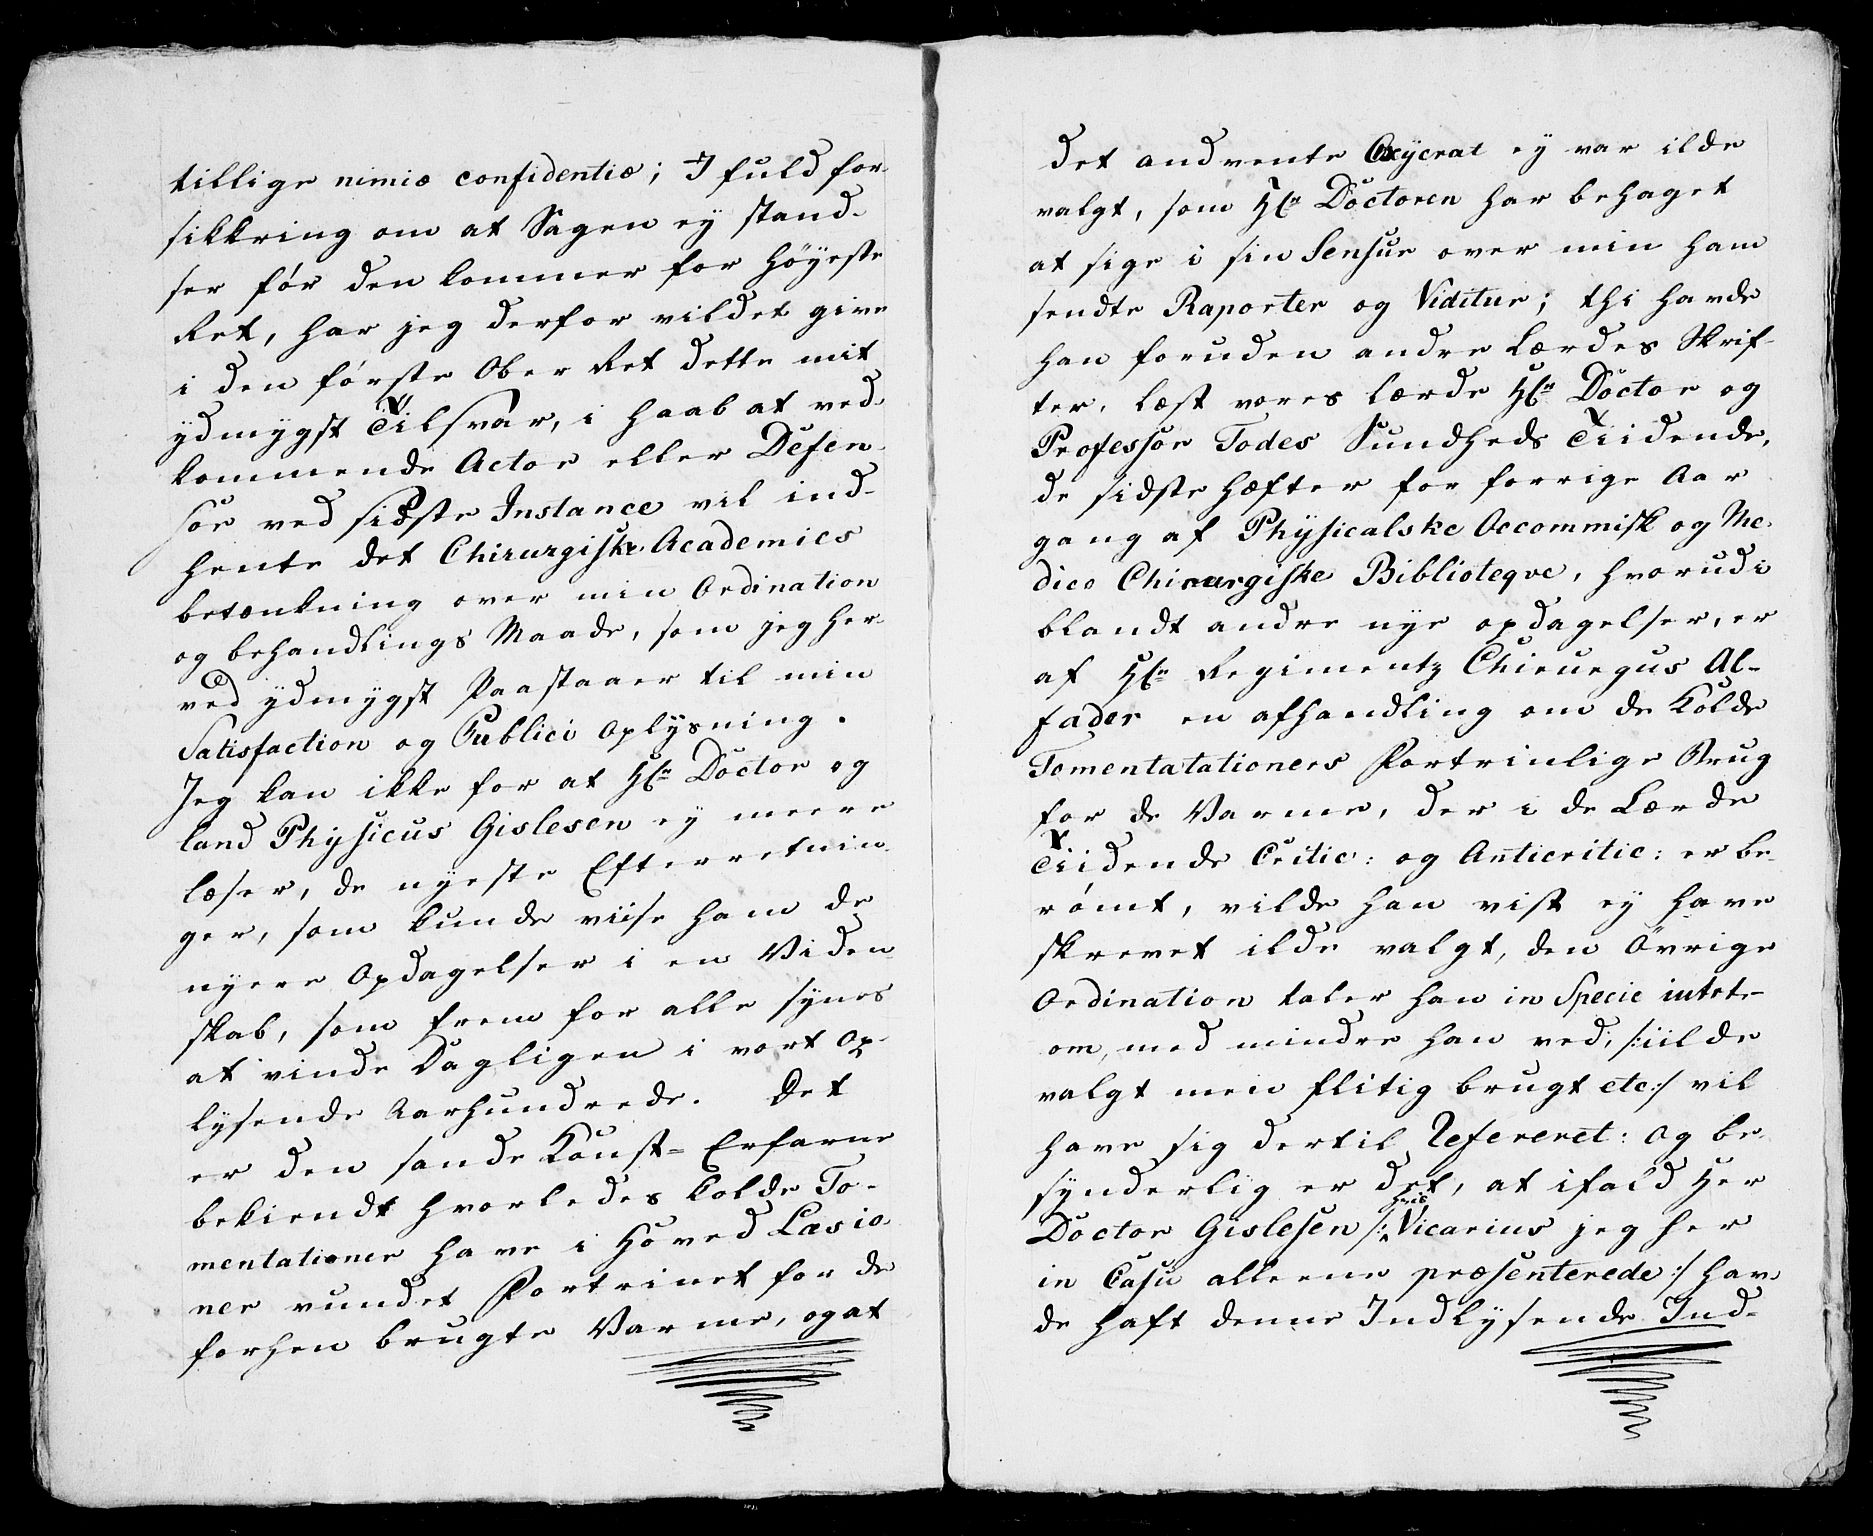 tillige nimiæ confidentiæ; I fuld for-
sikkring om at Sagen ey stand-
ser før den kommer for Høyeste
Ret, har jeg derfor vildet give
i den første Ober Ret dette mit
ydmygst Tilsvar, i haab at ved-
kommende Actor eller Defen-
sor ved sidste Instance vil ind-
hente det Chirurgiske Academies
betænkning over min Ordination
og behandlings Maade, som jeg her-
ved ydmygst Paastaaer til min
Satisfaction og Publici Oplysning.
Jeg kan ikke for at Hr Doctor og
land Physicus Gislesen ey meere
læser, de nyeste Efterretnin-
ger, som kunde viise ham de
nyere Opdagelser i en Viden
skab, som frem for alle synes
at vinde Dagligen i vort Op-
lysende Aarhundrede. Det
er den sande Konst=Erfarne
bekiendt hvorledes Kolde Fo-
mentationer have i Hoved Læsio-
ner vundet Fortrinet for de
forhen brugte Varme, og at
det andvente Oxycrat ey var ilde
valgt, som Hr Doctoren har behaget
at sige i sin Sensur over min ham
sendte Raporter og Viditur; thi havde
han foruden andre Lærdes Skrif-
ter, læst vores lærde Hr Doctor og
Professor Todes Sundheds Tiidende,
de sidste Hæfter for forrige Aar
gang af Physicalske Oecommisk og Me-
dico Chirurgiske Biblioteqve, hvorudi
blandt andre nye opdagelser, er
af Hr Regimentz Chirurgus Al-
fader en afhandling om de Kolde
Fomentatationers Fortrinlige Brug
for de Varme, der i de Lærde
Tiidende Critic: og Anticritic: er be-
rømt, vilde han vist ey have
skrevet ilde valgt, den Øvrige
Ordination taler han in Specie intet
om, med mindre han ved, /:iilde
valgt men flitig brugt etc:/ vil
have sig dertil Refereret: Og be-
synderlig er det, at ifald Her
Doctor Gislesen /: hvis Vicarius jeg her
in Casu alleene præsenterede :/ hav-
de haft denne Indlysende Ind-